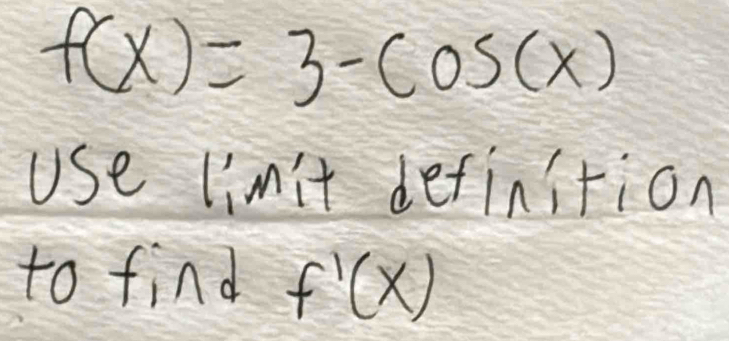 f(x) = 3-cos(x)
Use limit definition
to find f'(x)